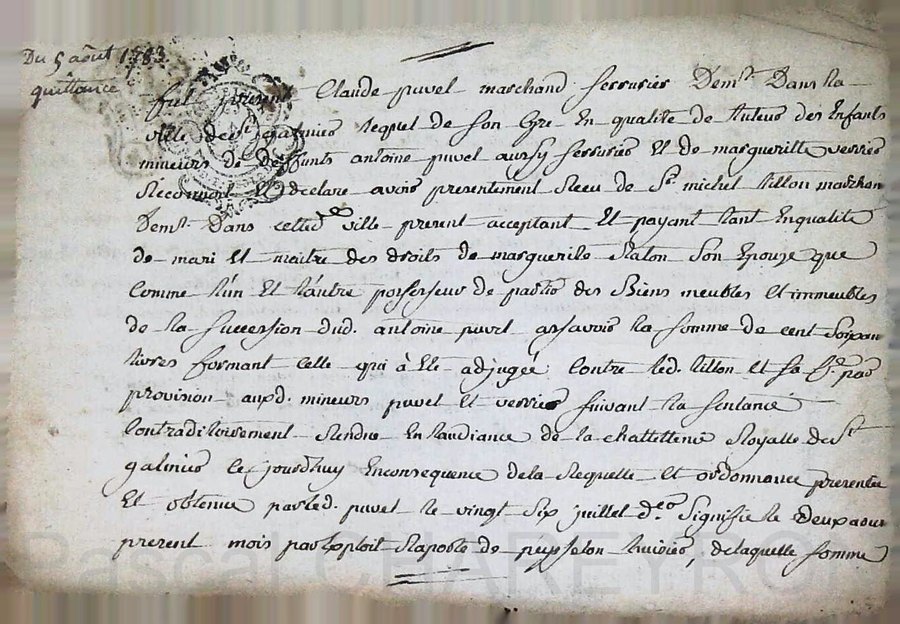 Du 5 août 1783
quittance
fut présent Claude puvel marchand serrurier Demt. Dans la
ville de St galmier lequel de son Gre En qualité de tuteur des Enfants
mineurs de deffunts antoine puvel aussy serrurier Et de margueritte verrier
Reconnait Et declare avoir presentement Receu de Sr. michel tillon marchan
Demt. Dans cette de ville present acceptant Et payant tant En qualité
de mari Et maitre des droits de marguerite Raton Son Epouze que
Comme l'un Et l'autre possesseur de partie des Biens meubles Et immeubles
de la succession dud. antoine puvel assavoir la somme de cent soixan
livres formant celle qui à Eté adjugée Contre led. tillon et sa fe. par
provision auxd. mineurs puvel Et verrier suivant la sentance
Contraditoirement Rendue En laudiance de la chattellenie Royalle de St
galmier le jourdhuy En consequence de la Requette Et ordonnance presentée
Et obtenue par led. puvel le vingt Six juillet der Signifié le deux aout
present mois par Exploit de huissier, de laquelle somme
Pascal CHAREYRON